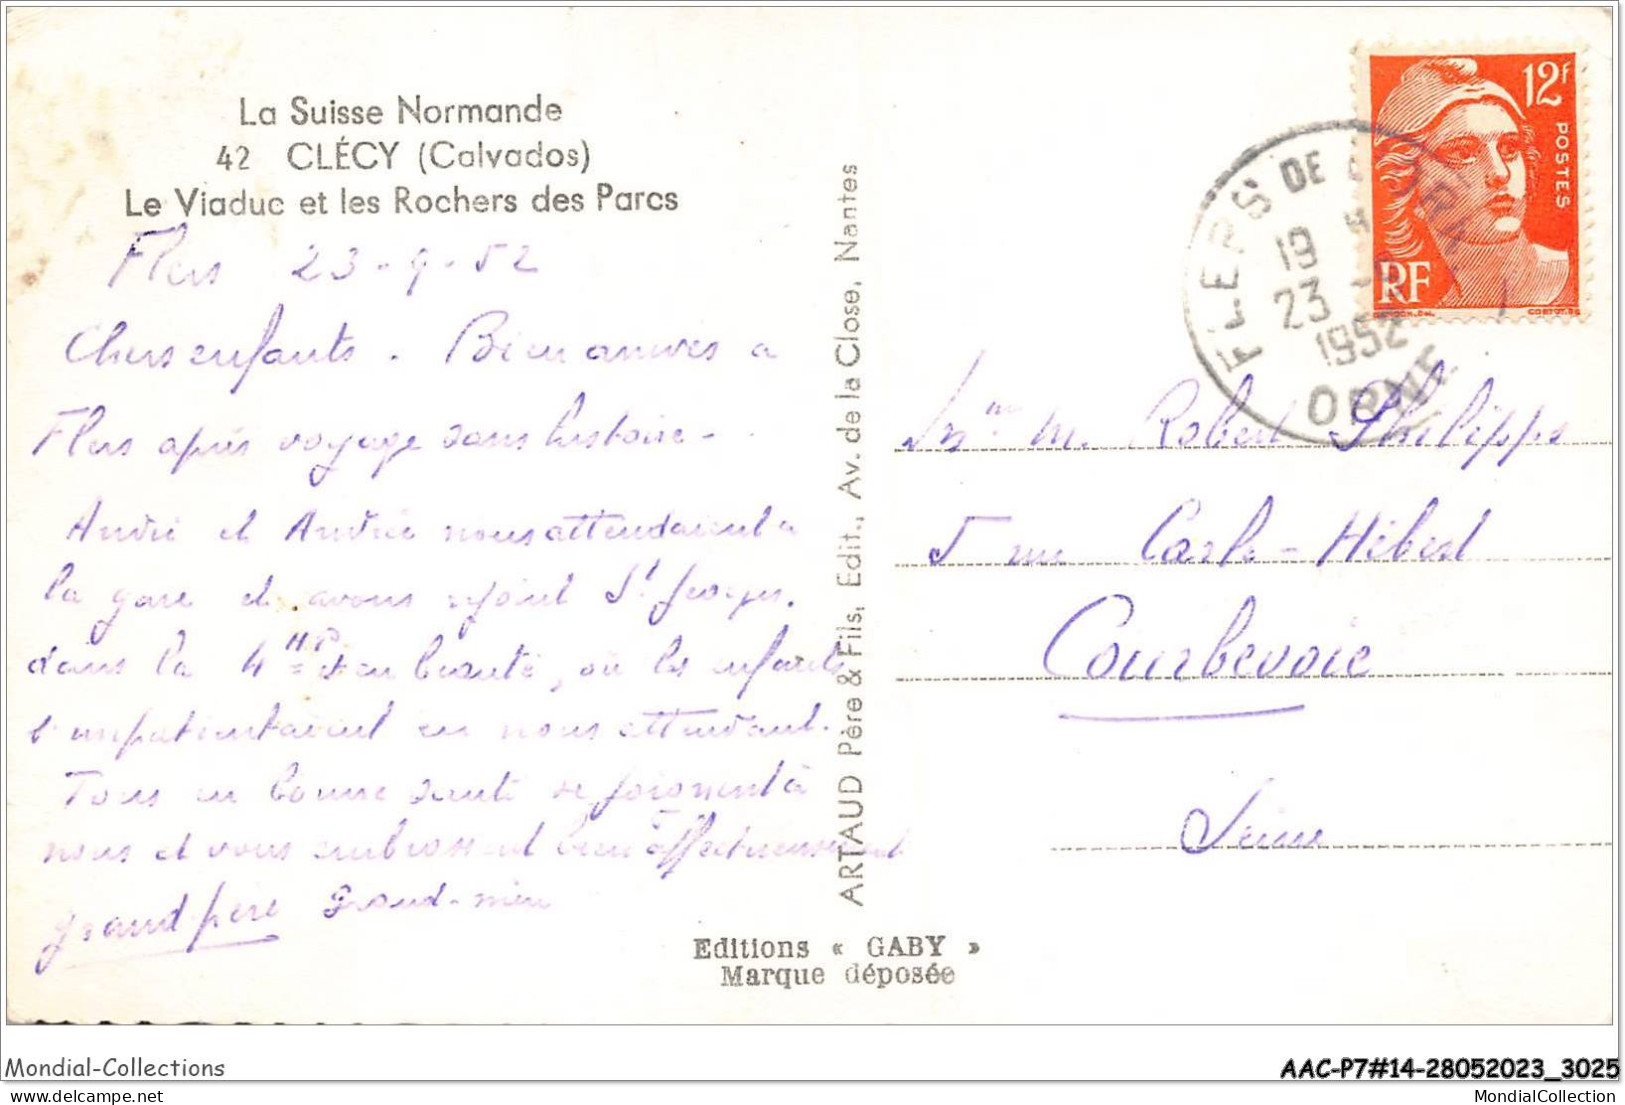 La Suisse Normande
42 CLÉCY (Calvados)
Le Viaduc et les Rochers des Parcs
Flers 23-9-52
Chers enfants. Bien arrivés a
Flers après voyage sans histoire-
André et Andrée nous attendaient a
la gare et avons rejoint St Georges.
dans la 4 HP et en beauté, où les enfants
s'impatientaient en nous attendant.
Tous en bonne santé se joignent à
nous et vous embrassent bien affectueusement
grand père Grand-mère
ARTAUD Père & Fils, Edit., Av. de la Close, Nantes
Editions « GABY »
Marque déposée
12f
POSTES
RF
GANDON.DEL.
CORTOT.SC
FLERS DE L'ORNE
19 H
23 -9
1952
ORNE
M. Robert Philippe
5 rue Carle-Hébert
Courbevoie
Seine
Mondial-Collections
AAC-P7#14-28052023_3025
MondialCollection